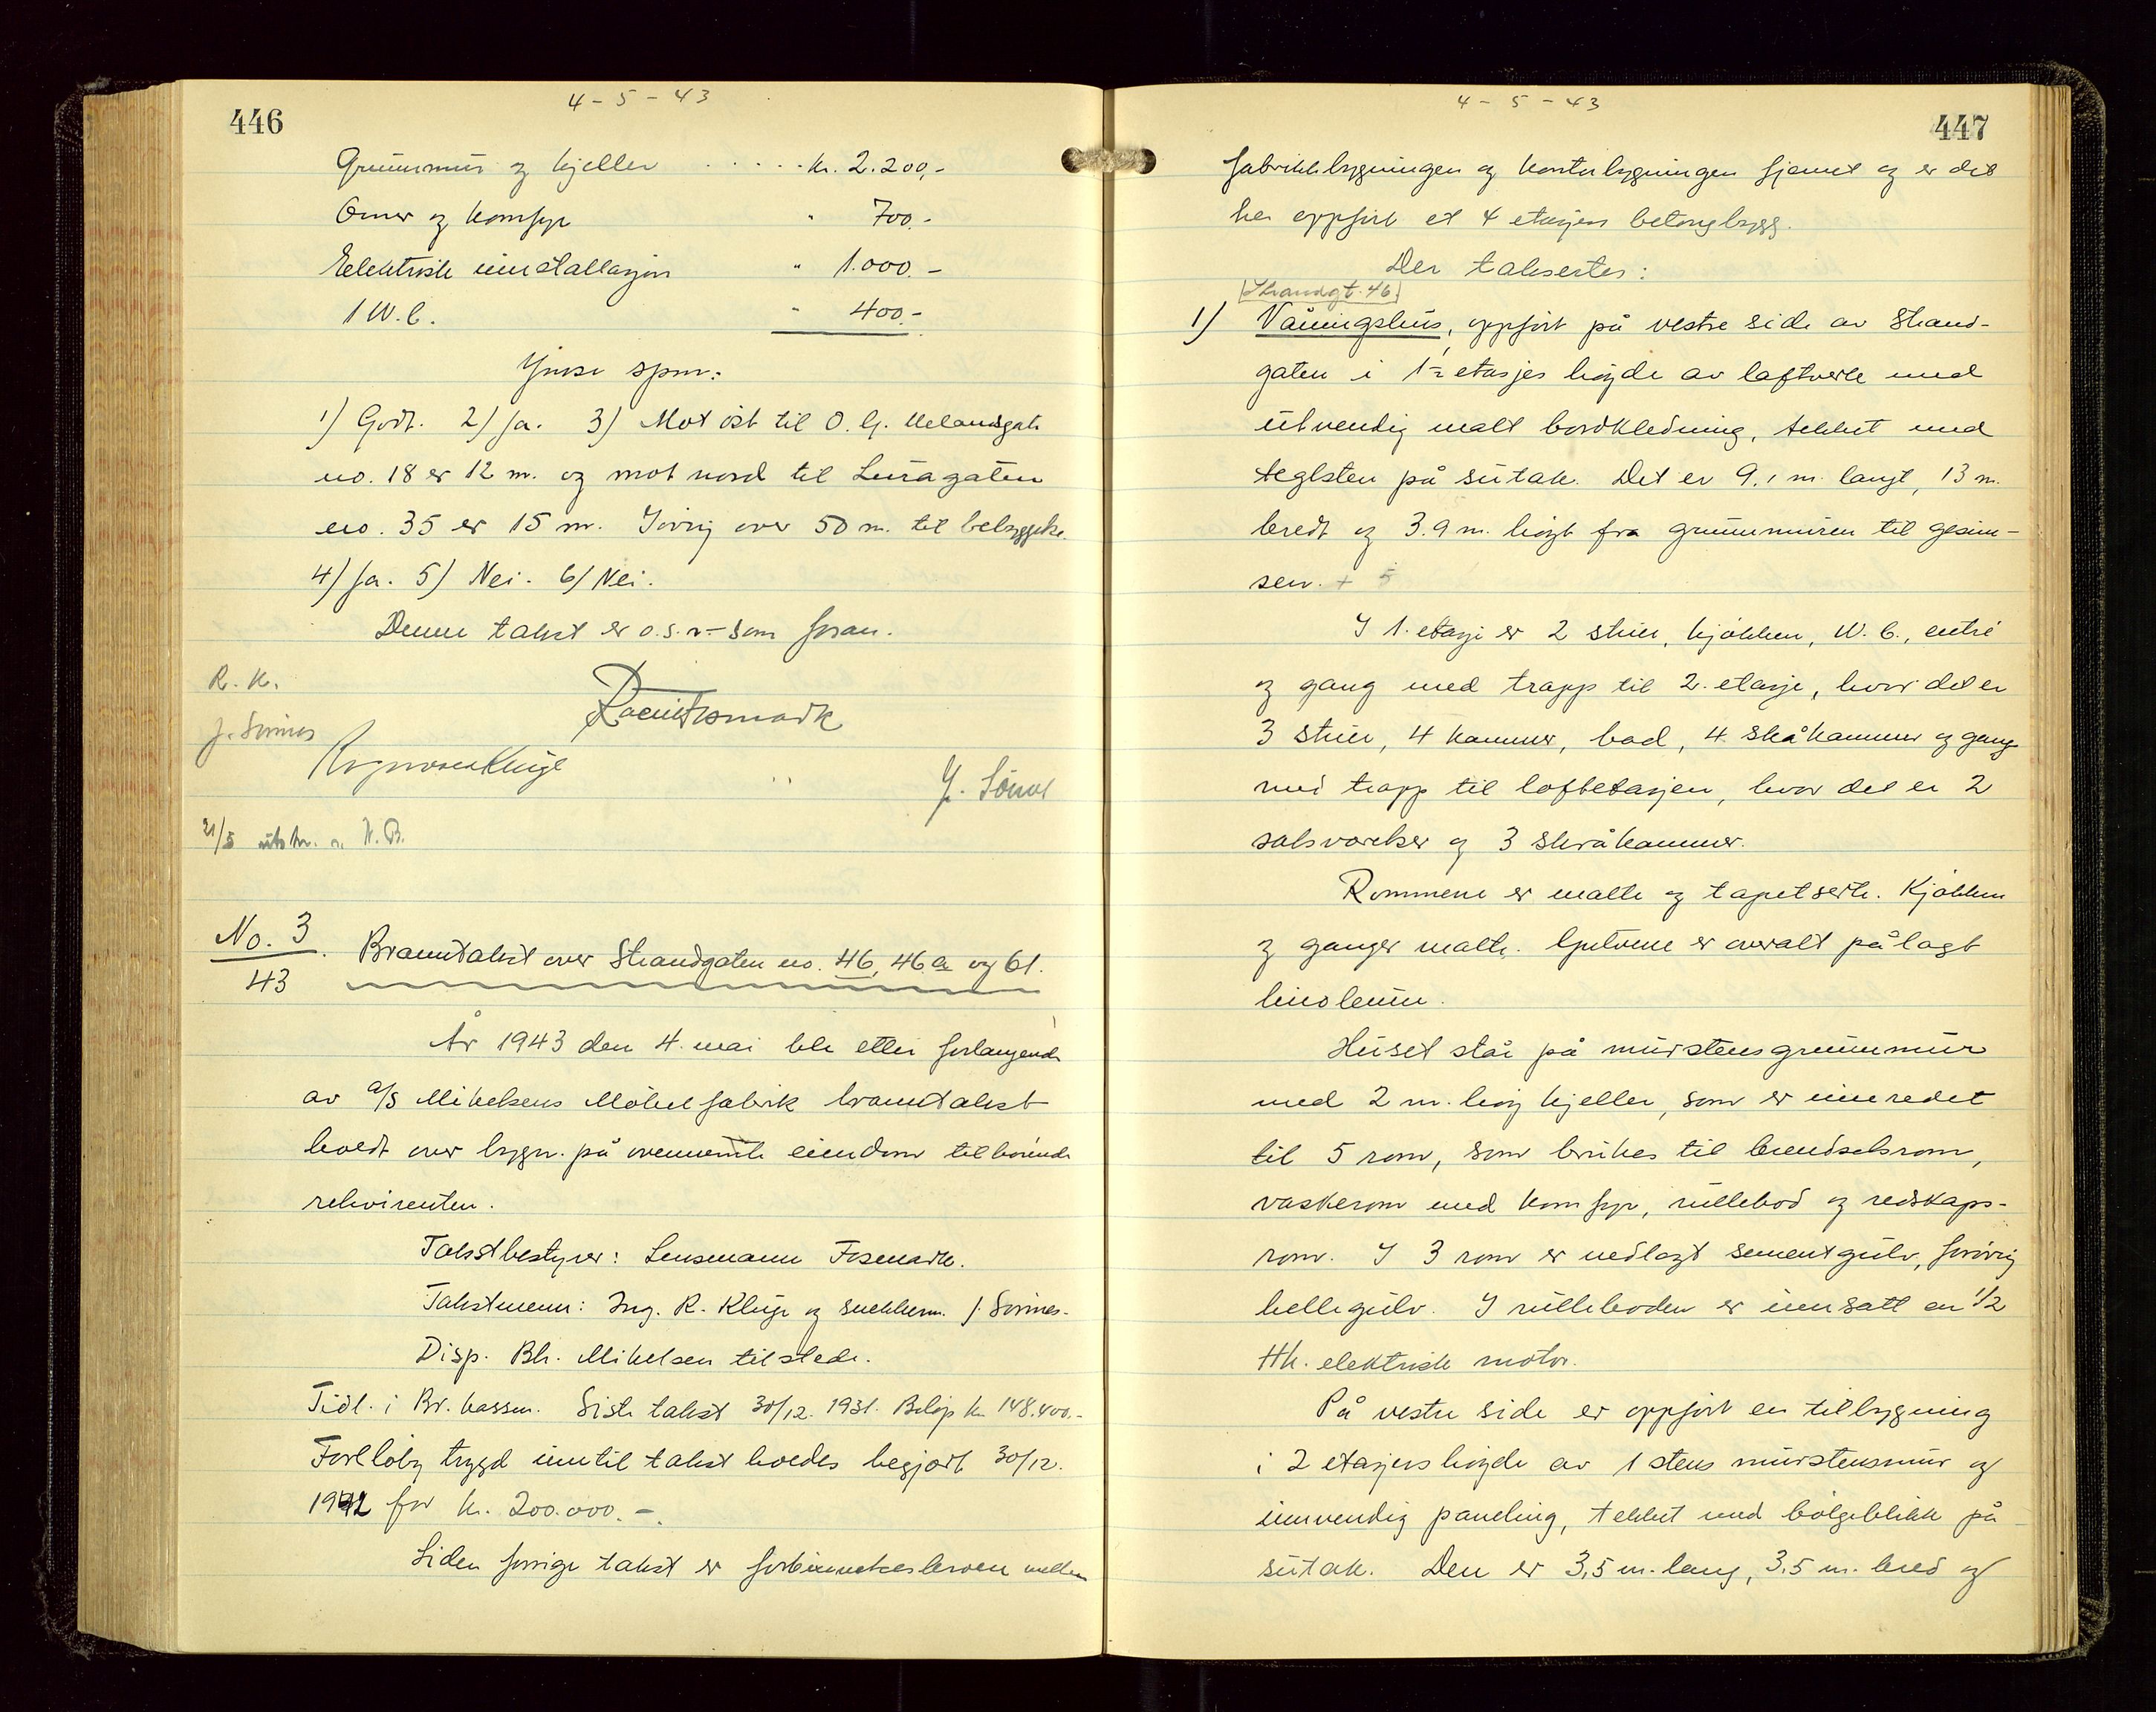 446
4-5-43
Grunnmur og kjeller ..... kr. 2.200,-
Ovner og komfyr " 700.-
Eelektrisk innstallasjon " 1.000.-
1 W.C. " 400.-
Ymse spm:
1) Godt. 2) Ja. 3) Mot öst til O. G. Melandsgate
no. 18 er 12 m. og mot nord til Luragaten
no. 35 er 15 m. Iövrig over 50 m. til bebyggelse.
4) Ja. 5) Nei. 6) Nei.
Denne takst er o.s.v. - som foran.
R. K.
J. Sömes
J. Sömes
21/5 utskr. H.B.
No. 3
43
Branntakst over Strandgaten no. 46, 46a og 61.
År 1943 den 4. mai ble etter forlangende
av a/s Mikelsens Möbelfabrik branntakst
holdt over bygn. på ovennevnte eiendom tilhörende
rekvirenten.
Takstbestyrer: Lensmann Fosmark.
Takstmenn: Ing. R. Kluge og snekkerm. J. Sömes.
Disp. Bh. Mikelsen tilstede.
Tidl. i Br. kassen. Siste takst 30/12. 1931. Belöp kr. 148.400.-
Forelöbig trygd inntil takst holdes begjært 30/12.
1942 for kr. 200.000.-
Siden forrige takst er forbindelsesbroen mellem
4-5-43
447
fabrikkbygningen og kontorbygningen fjernet og er det
her oppfört et 4 etasjers betongbygg.
Der takseres:
[Strandgt. 46]
1) Våningshus, oppfört på vestre side av Strand-
gaten i 1½ etasjes höyde av laftverk med
utvendig malt bordkledning, tekket med
teglsten på sutak. Det er 9,1 m. langt, 13 m.
bredt og 3.9 m. höyt fra grunnmuren til gesim-
sen. + 5
I 1. etasje er 2 stuer, kjökken, W.C., entré
og gang med trapp til 2. etasje, hvor det er
3 stuer, 4 kammer, bad, 4 skåkammer og gang
med trapp til loftetasjen, hvor det er 2
satsvarelser og 3 skråkammer.
Rommene er malte og tapetserte. Kjökken
og ganger malte. Gulvene er overalt pålagt
linoleum.
Huset står på murstensgrunnmur
med 2 m. höy kjeller, som er innredet
til 5 rom, som brukes til brendselsrom,
vaskerom med komfyr, rullebod og redskaps-
rom. I 3 rom er nedlagt sementgulv, forövrig
hellegulv. I rulleboden er innsatt en 1/2
Hk. elektrisk motor.
På vestre side er oppfört en tilbygning
i 2 etasjers höyde av 1 stens murstensmur og
innvendig paneling, tekket med bölgeblikk på
sutak. Den er 3,5 m. lang, 3,5 m. bred og